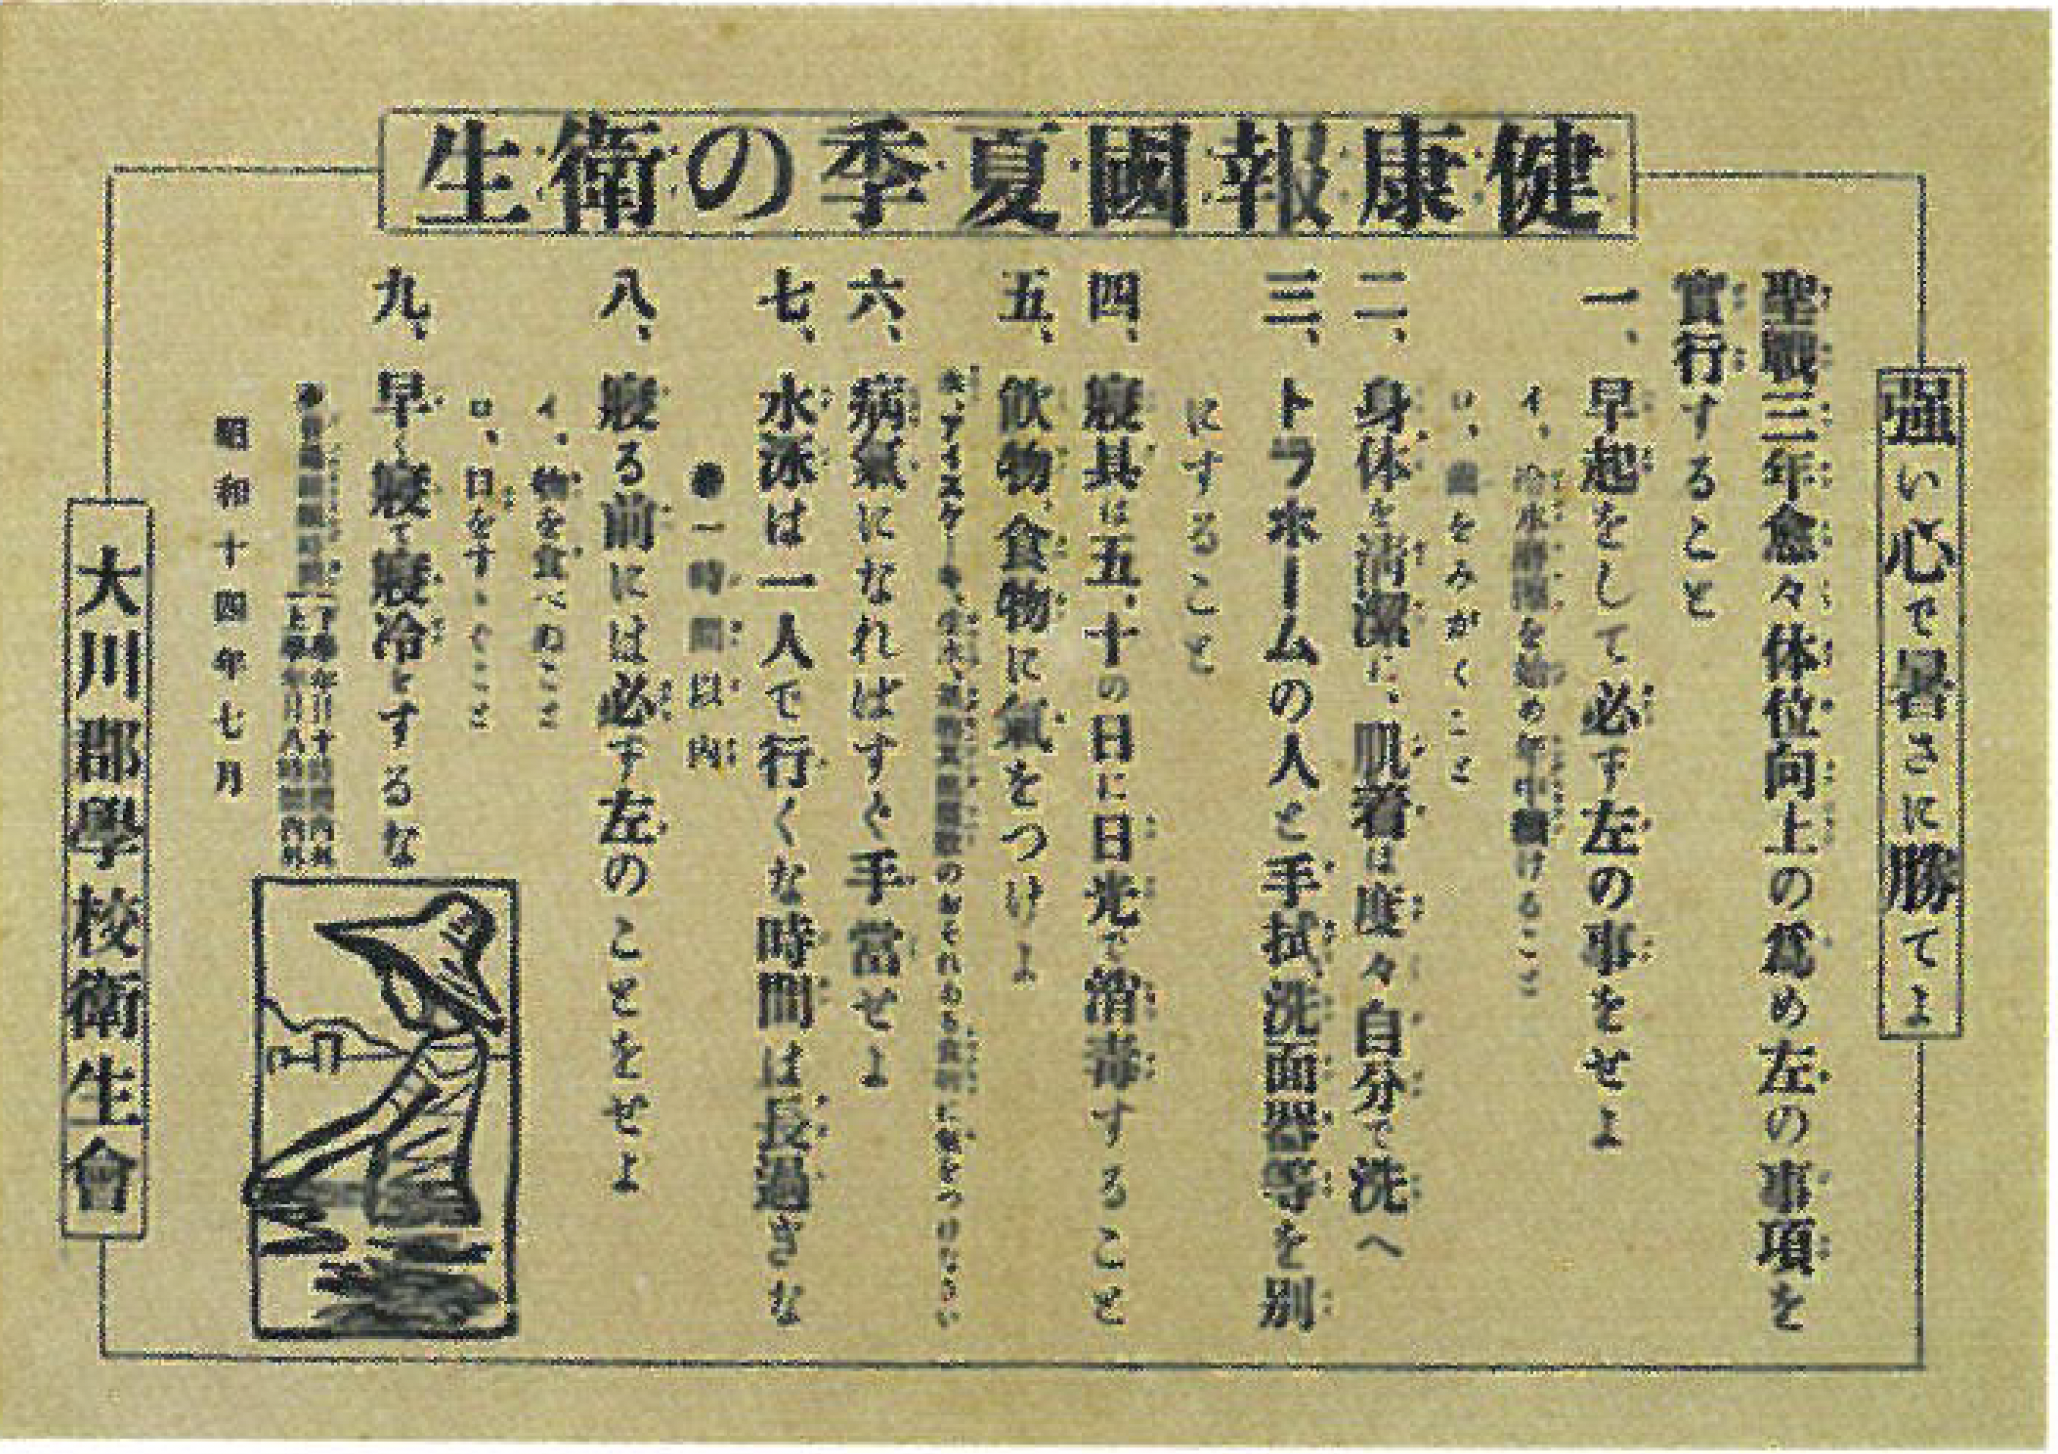 健康報國夏季の衛生
强い心で暑さに勝てよ
聖戰三年愈々体位向上の爲め左の事項を
實行すること
一、早起をして必ず左の事をせよ
イ、冷水摩擦を始め年中續けること
ロ、齒をみがくこと
二、身体を淸潔に、肌着は度々自分で洗へ
三、トラホームの人と手拭、洗面器等を別
にすること
四、寢具は五、十の日に日光で消毒すること
五、飮物、食物に氣をつけよ
氷、アイスケーキ、生水、のおそれある食物に氣をつけなさい
六、病氣になればすぐ手當せよ
七、水泳は一人で行くな時間は長過ぎな
一時間以內
八、寢る前には必ず左のことをせよ
イ、物を食べぬこと
ロ、口をすゝぐこと
九、早く寢て寢冷をするな
睡眠時間
下學年日十時間內外
上學年日八時間內外
昭和十四年七月
大川郡學校衛生會